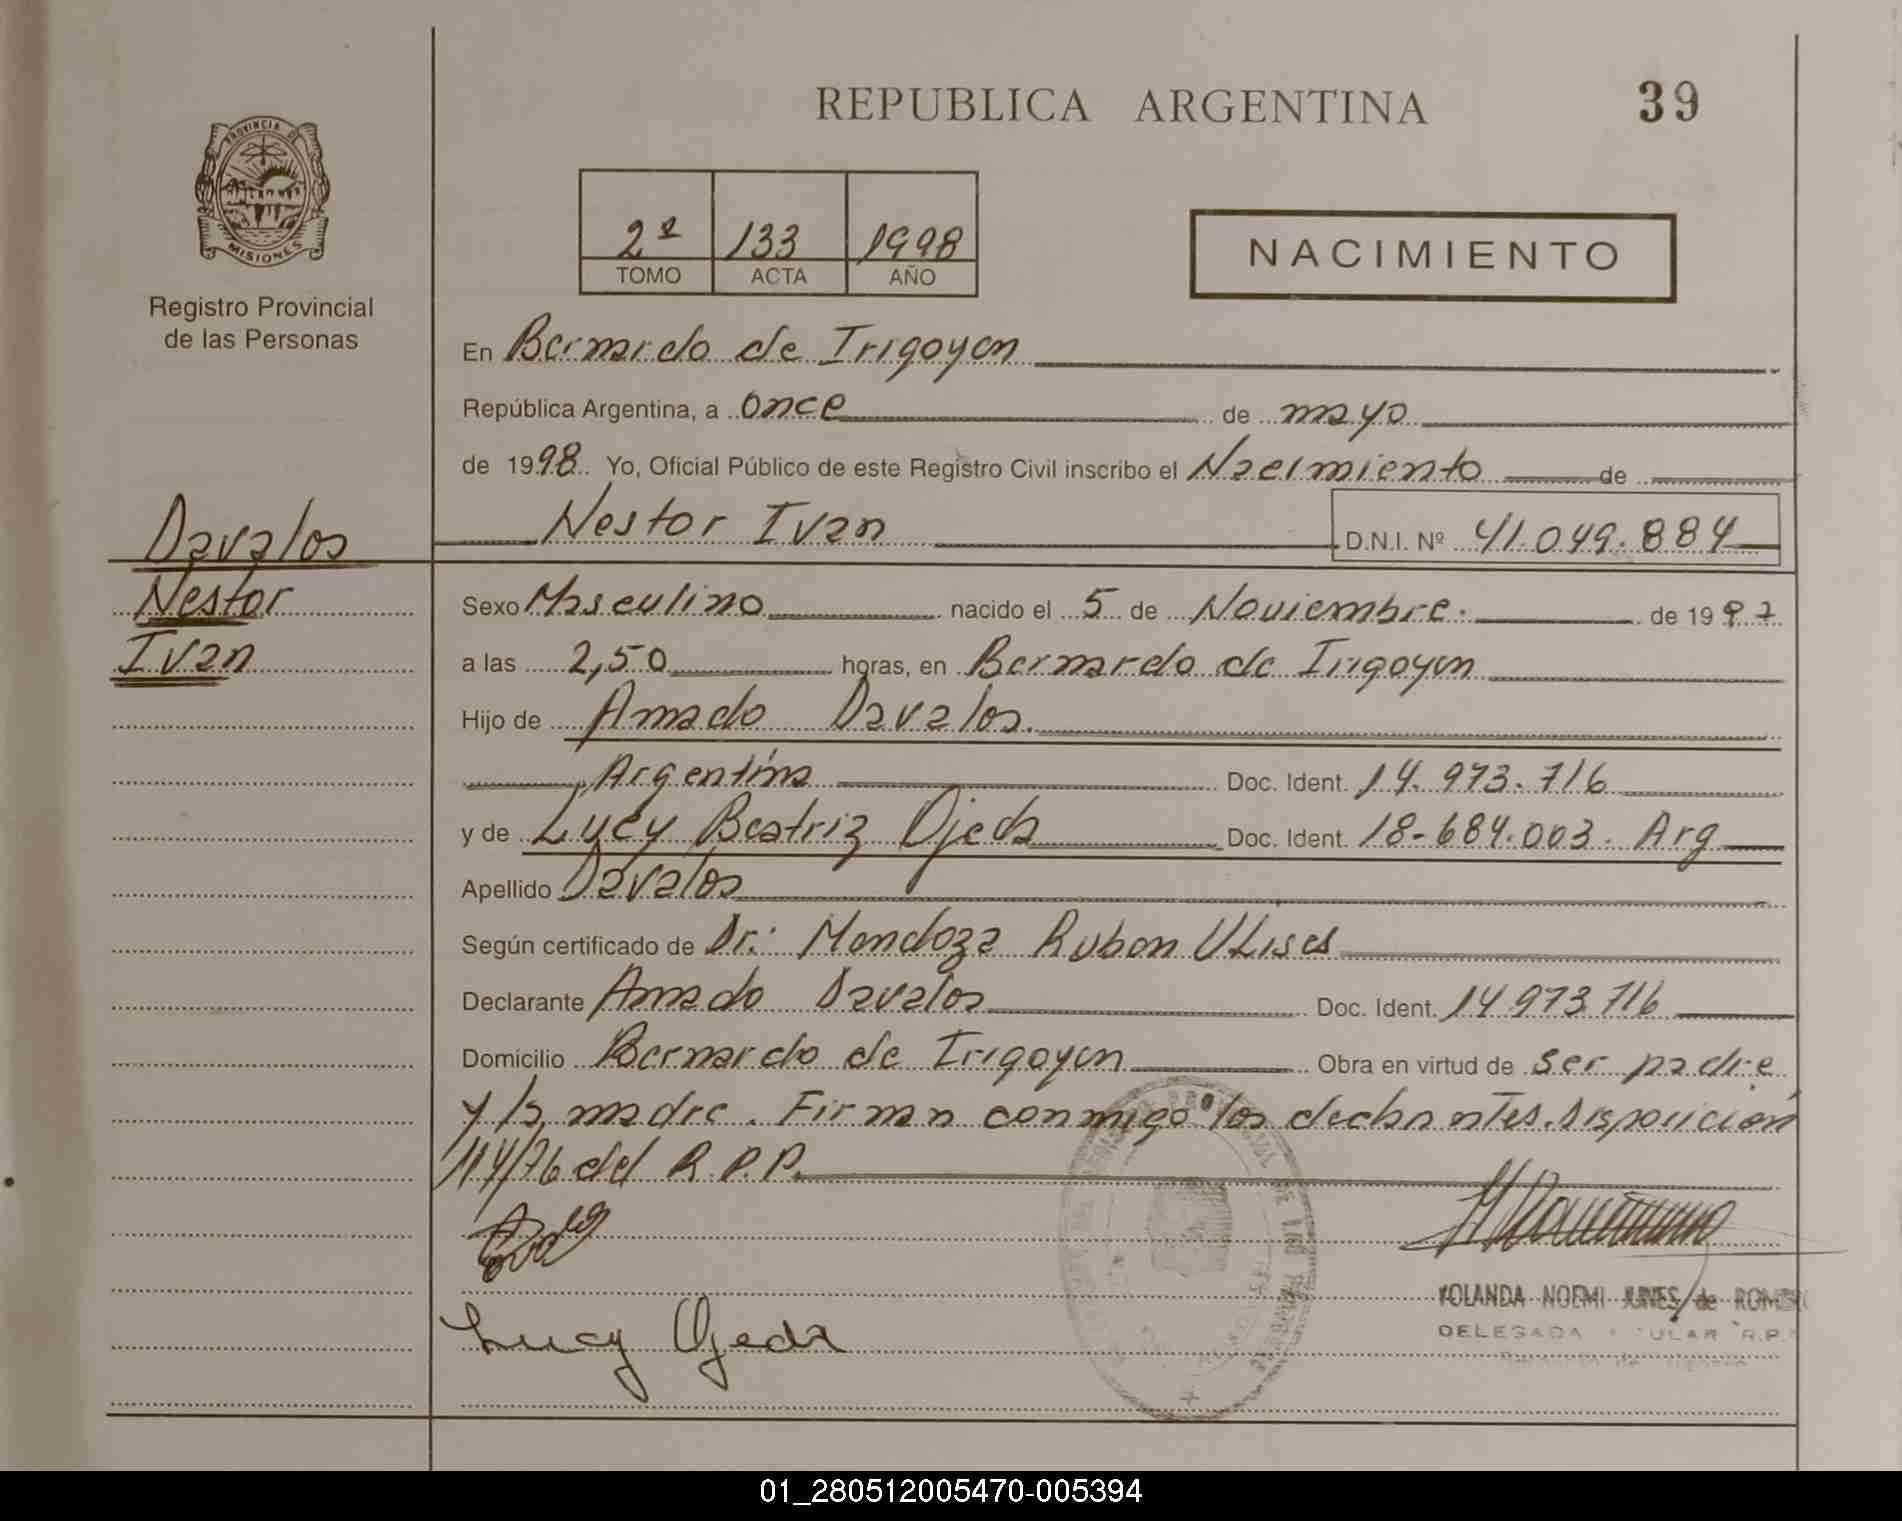 REPUBLICA ARGENTINA
39
PROVINCIA DE
MISIONES
Registro Provincial
de las Personas
2º 133 1998
TOMO ACTA AÑO
NACIMIENTO
En Bernardo de Irigoyen
República Argentina, a once de mayo
de 1998 Yo, Oficial Público de este Registro Civil inscribo el Nacimiento de
Nestor Ivan D.N.I. Nº 41.049.884
Davalos
Nestor
Ivan
Sexo Masculino nacido el 5 de Noviembre. de 1997
a las 2,50 horas, en Bernardo de Irigoyen
Hijo de Amado Davalos.
Argentina Doc. Ident. 14.973.716
y de Lucy Beatriz Ojeda Doc. Ident. 18-684.003. Arg
Apellido Davalos
Según certificado de Dr.: Mendoza Ruben Ulises
Declarante Amado Davalos Doc. Ident. 14973716
Domicilio Bernardo de Irigoyen Obra en virtud de ser padre
y la madre. Firman conmigo los declarantes. Disposición
114/76 del R.P.P.
Lucy Ojeda
YOLANDA NOEMI de
DELEGADA R.P.
01_280512005470-005394